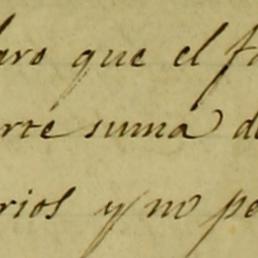 laro que el fa
erte suma de
rios y no pe